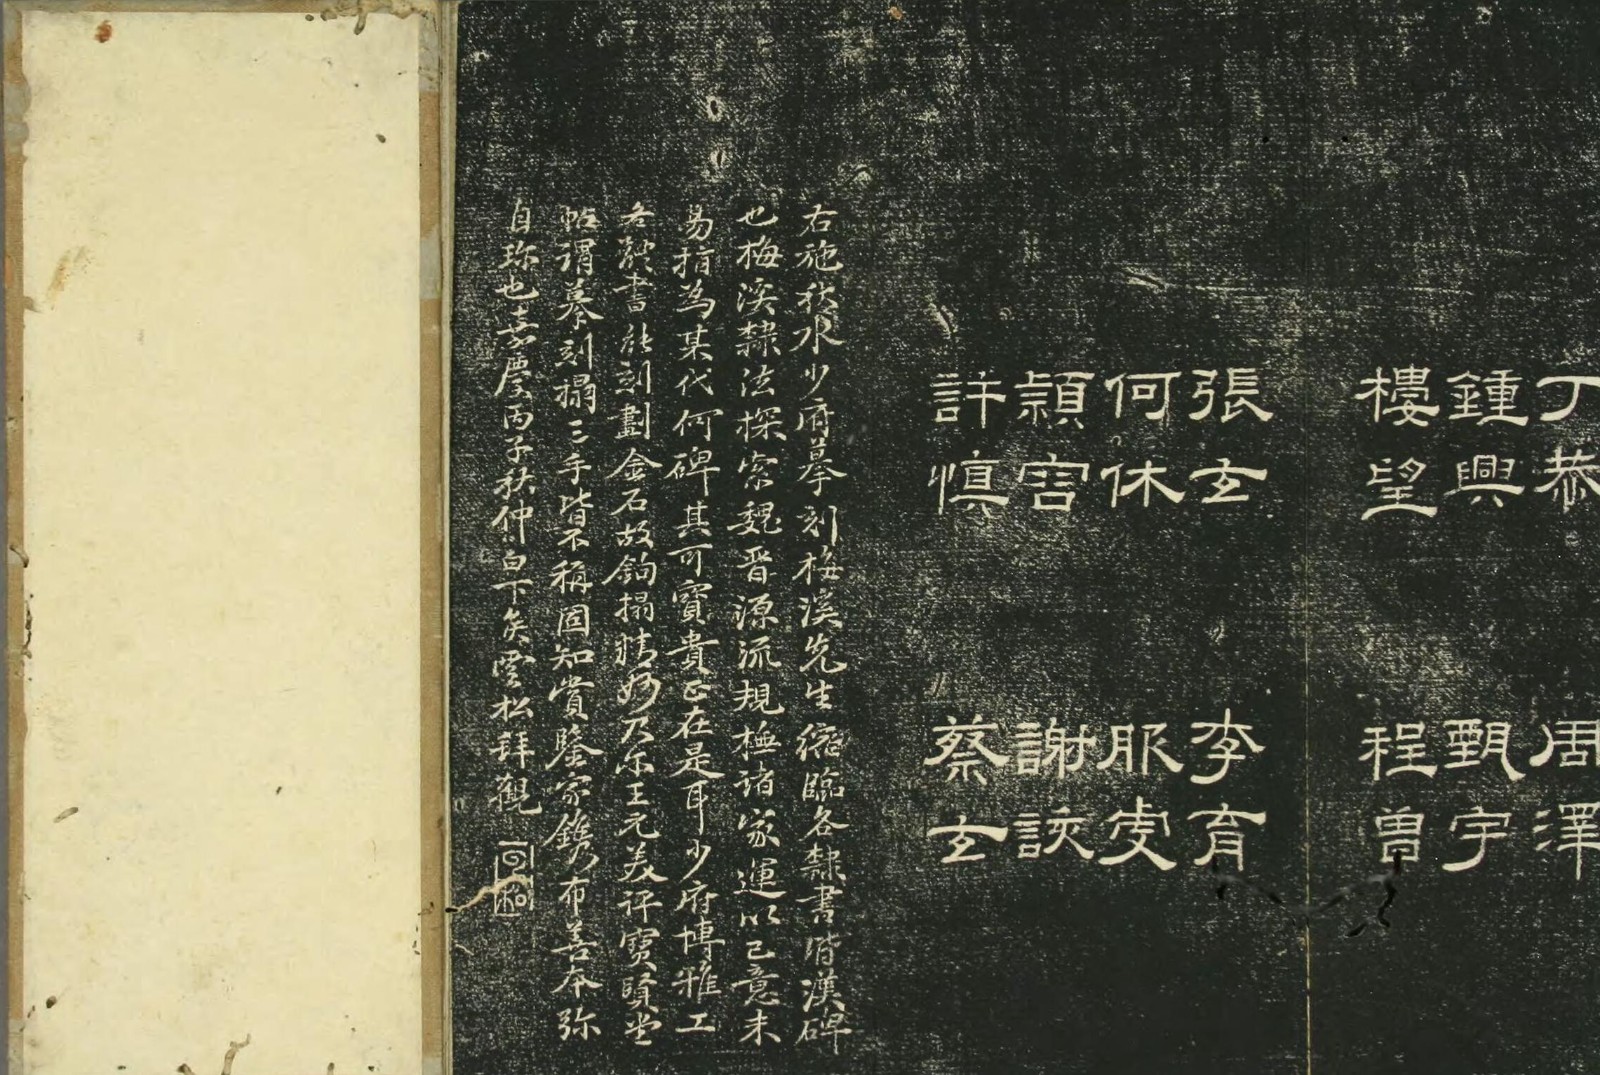 丁恭
周澤
鍾興
甄宇
樓望
程曾
張玄
李育
何休
服虔
潁容
謝該
許慎
蔡玄
右施秋水少府摹刻梅溪先生縮臨各隸書階漢碑
也梅溪隸法探索魏晉源流規橅諸家運以己意未
易指為某代何碑其可寶貴正在是耳少府博雅工
各體書能刻劃金石故鉤搨精妙乃尔王元美評寶賢堂
帖謂摹刻搨三手皆不稱固知賞鑒家鐫布善本弥
自珎也嘉慶丙子秋仲白下矦雲松拜觀